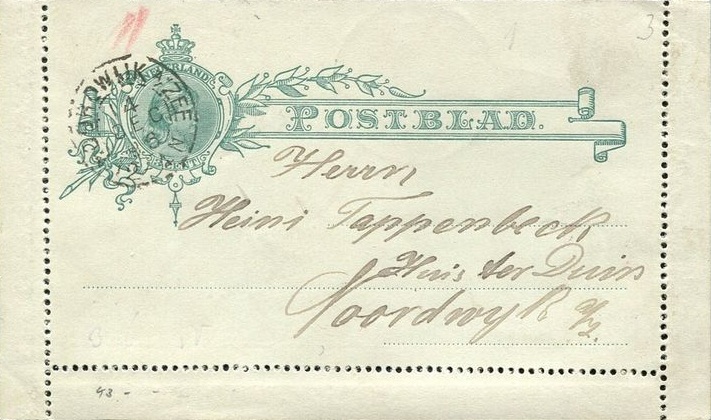 3
NEDERLAND
NOORDWIJK A/ZEE
POSTBLAD.
Herrn
Heini Tappenbeck
Huis ter Duin
Noordwyk a/z.
43.-